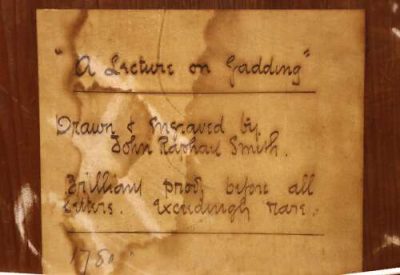 "A Lecture on Gadding"
Drawn & Engraved by
John Raphael Smith.
Brilliant proof before all
letters. Exceedingly rare.
1780